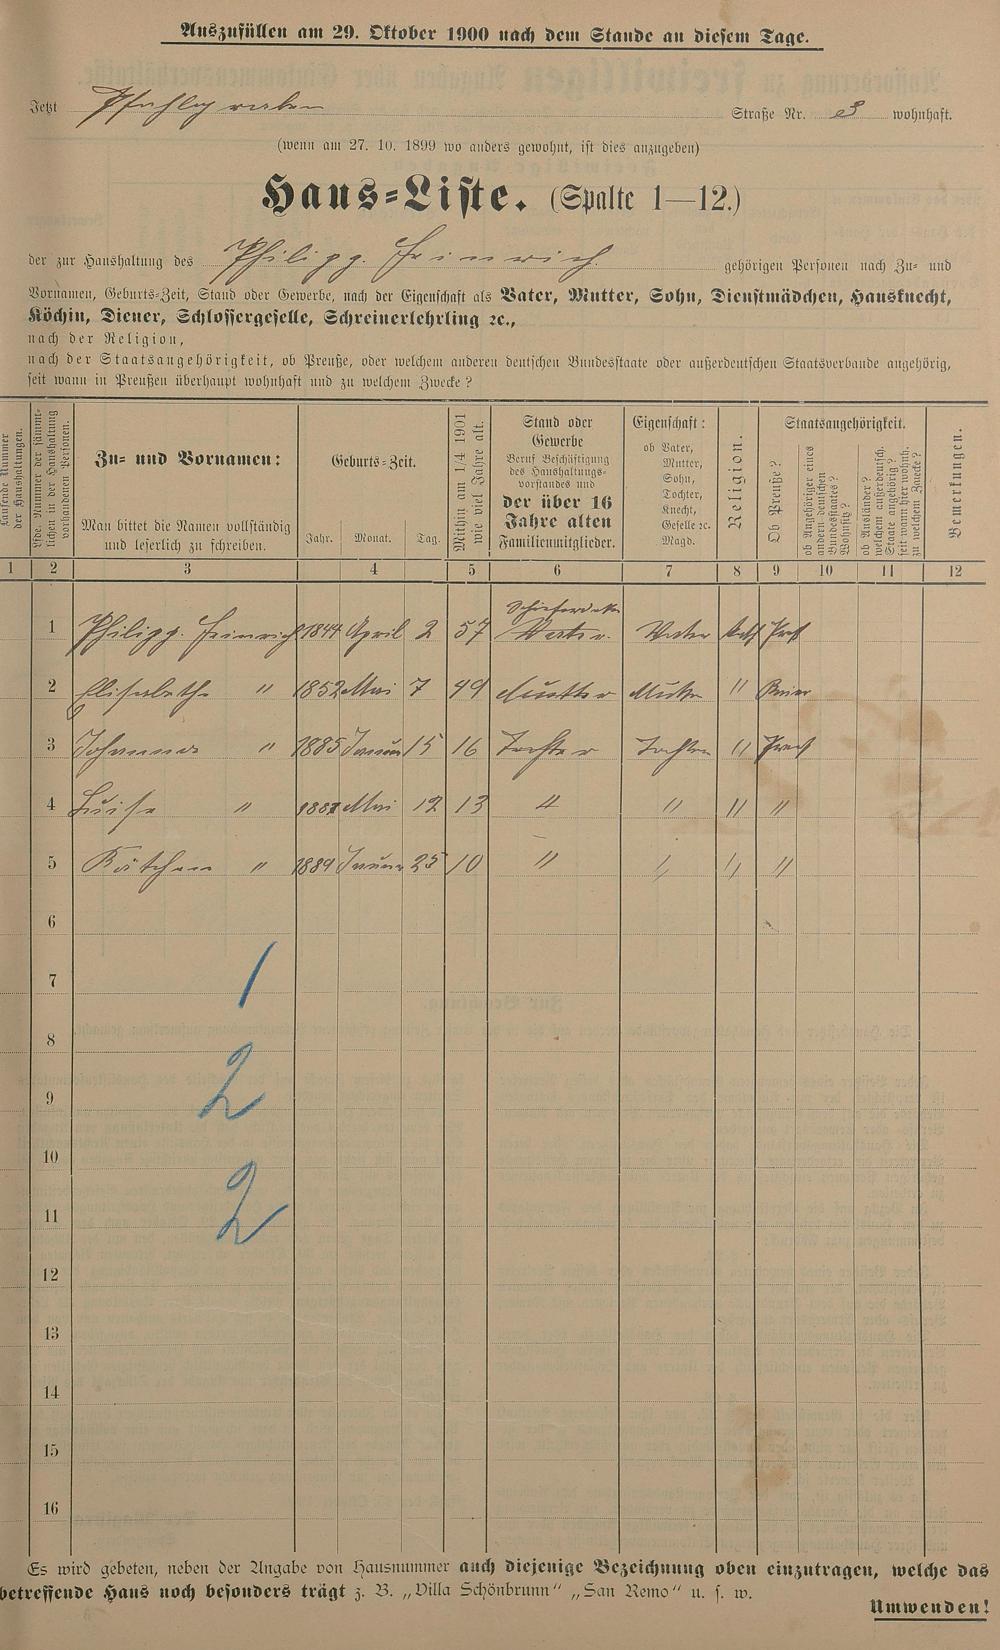 Auszufüllen am 29. Oktober 1900 nach dem Stande an diesem Tage.
Jetzt Pfahlgraben Straße Nr. 3 wohnhaft.
(wenn am 27. 10. 1899 wo anders gewohnt, ist dies anzugeben)
Haus=Liste. (Spalte 1—12.)
der zur Haushaltung des Philipp. Heinrich. gehörigen Personen nach Zu= und
Vornamen, Geburts=Zeit, Stand oder Gewerbe, nach der Eigenschaft als Vater, Mutter, Sohn, Dienstmädchen, Hausknecht,
Köchin, Diener, Schlossergeselle, Schreinerlehrling ꝛc.,
nach der Religion,
nach der Staatsangehörigkeit, ob Preuße, oder welchem anderen deutschen Bundesstaate oder außerdeutschen Staatsverbande angehörig,
seit wann in Preußen überhaupt wohnhaft und zu welchem Zwecke?
Laufende Nummer der Haushaltungen.
Lfde. Nummer der sämmtlichen in der Haushaltung vorhandenen Personen.
Zu= und Vornamen:
Man bittet die Namen vollständig
und leserlich zu schreiben.
Geburts=Zeit.
Jahr. Monat. Tag.
Mithin am 1/4 1901
wie viel Jahre alt.
Stand oder
Gewerbe
Beruf Beschäftigung
des Haushaltungs-
vorstandes und
der über 16
Jahre alten
Familienmitglieder.
Eigenschaft:
ob Vater,
Mutter,
Sohn,
Tochter,
Knecht,
Geselle ꝛc.
Magd.
Religion.
Staatsangehörigkeit.
Ob Preuße?
ob Angehöriger eines
andern deutschen
Bundesstaates?
Wohnsitz?
ob Ausländer?
welchem außerdeutsch.
Staate angehörig?
seit wann hier wohnh.
zu welchem Zwecke?
Bemerkungen.
1 2 3 4 5 6 7 8 9 10 11 12
1 Philipp. Heinrich 1844 April 2 57 Vater. Vater
2 Elisabethe " 1852 Mai 7 49 Mutter Mutter "
3 Johanna " 1885 Januar 15 16 Tochter Tochter "
4 Luise " 1887 Mai 12 13 " " " "
5 Kätchen " 1889 Januar 25 10 " " " "
6
7
1
8
9
2
10
11
2
12
13
14
15
16
Es wird gebeten, neben der Angabe von Hausnummer auch diejenige Bezeichnung oben einzutragen, welche das
betreffende Haus noch besonders trägt z. B. „Villa Schönbrunn" „San Remo" u. s. w.
Umwenden!